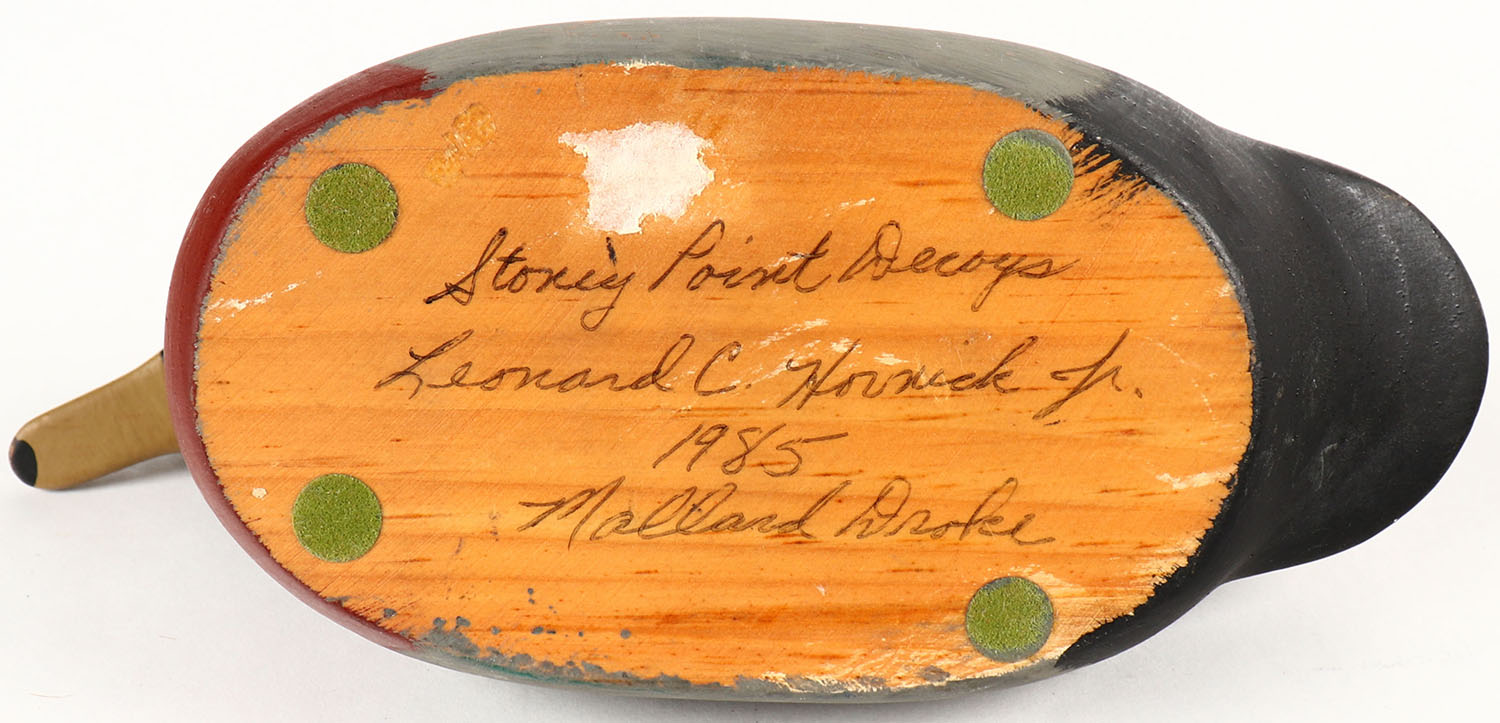 Stoney Point Decoys
Leonard C. Hornick Jr.
1985
Mallard Drake